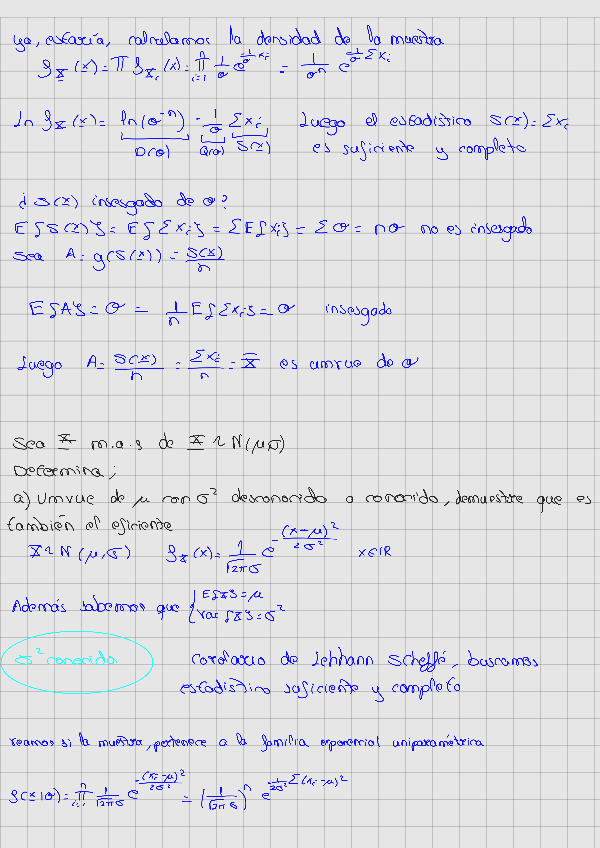 ya, estaría, calculamos la densidad de la muestra
f_X(x) = Π f_Xi(x) = Π_{i=1}^n 1/θ e^{-1/θ xi} = 1/θ^n e^{-1/θ Σxi}
ln f_X(x) = ln(θ^-n) - 1/θ Σxi Luego el estadístico S(x) = Σxi
D(θ) Q(θ) S(x) es suficiente y completo
¿ S(x) insesgado de θ?
E{S(x)} = E{Σxi} = ΣE{xi} = Σθ = nθ no es insesgado
Sea A = g(S(x)) = S(x)/n
E{A} = θ = 1/n E{Σxi} = θ insesgado
Luego A = S(x)/n = Σxi/n = X̄ es umvue de θ
Sea X m.a.s de X ~ N(μ,σ)
Determina;
a) Umvue de μ con σ² desconocido o conocido, demuestre que es
también el eficiente
X ~ N(μ,σ) f_X(x) = 1/(√2π σ) e^{-(x-μ)²/2σ²} x∈IR
Además sabemos que { E{X} = μ
Var{X} = σ²
σ² conocida Corolario de Lehmann Scheffé, buscamos
estadístico suficiente y completo
veamos si la muestra, pertenece a la familia exponencial uniparamétrica
f(x|θ) = Π_{i=1}^n 1/(√2π σ) e^{-(xi-μ)²/2σ²} = (1/(√2π σ))^n e^{-1/2σ² Σ(xi-μ)²}